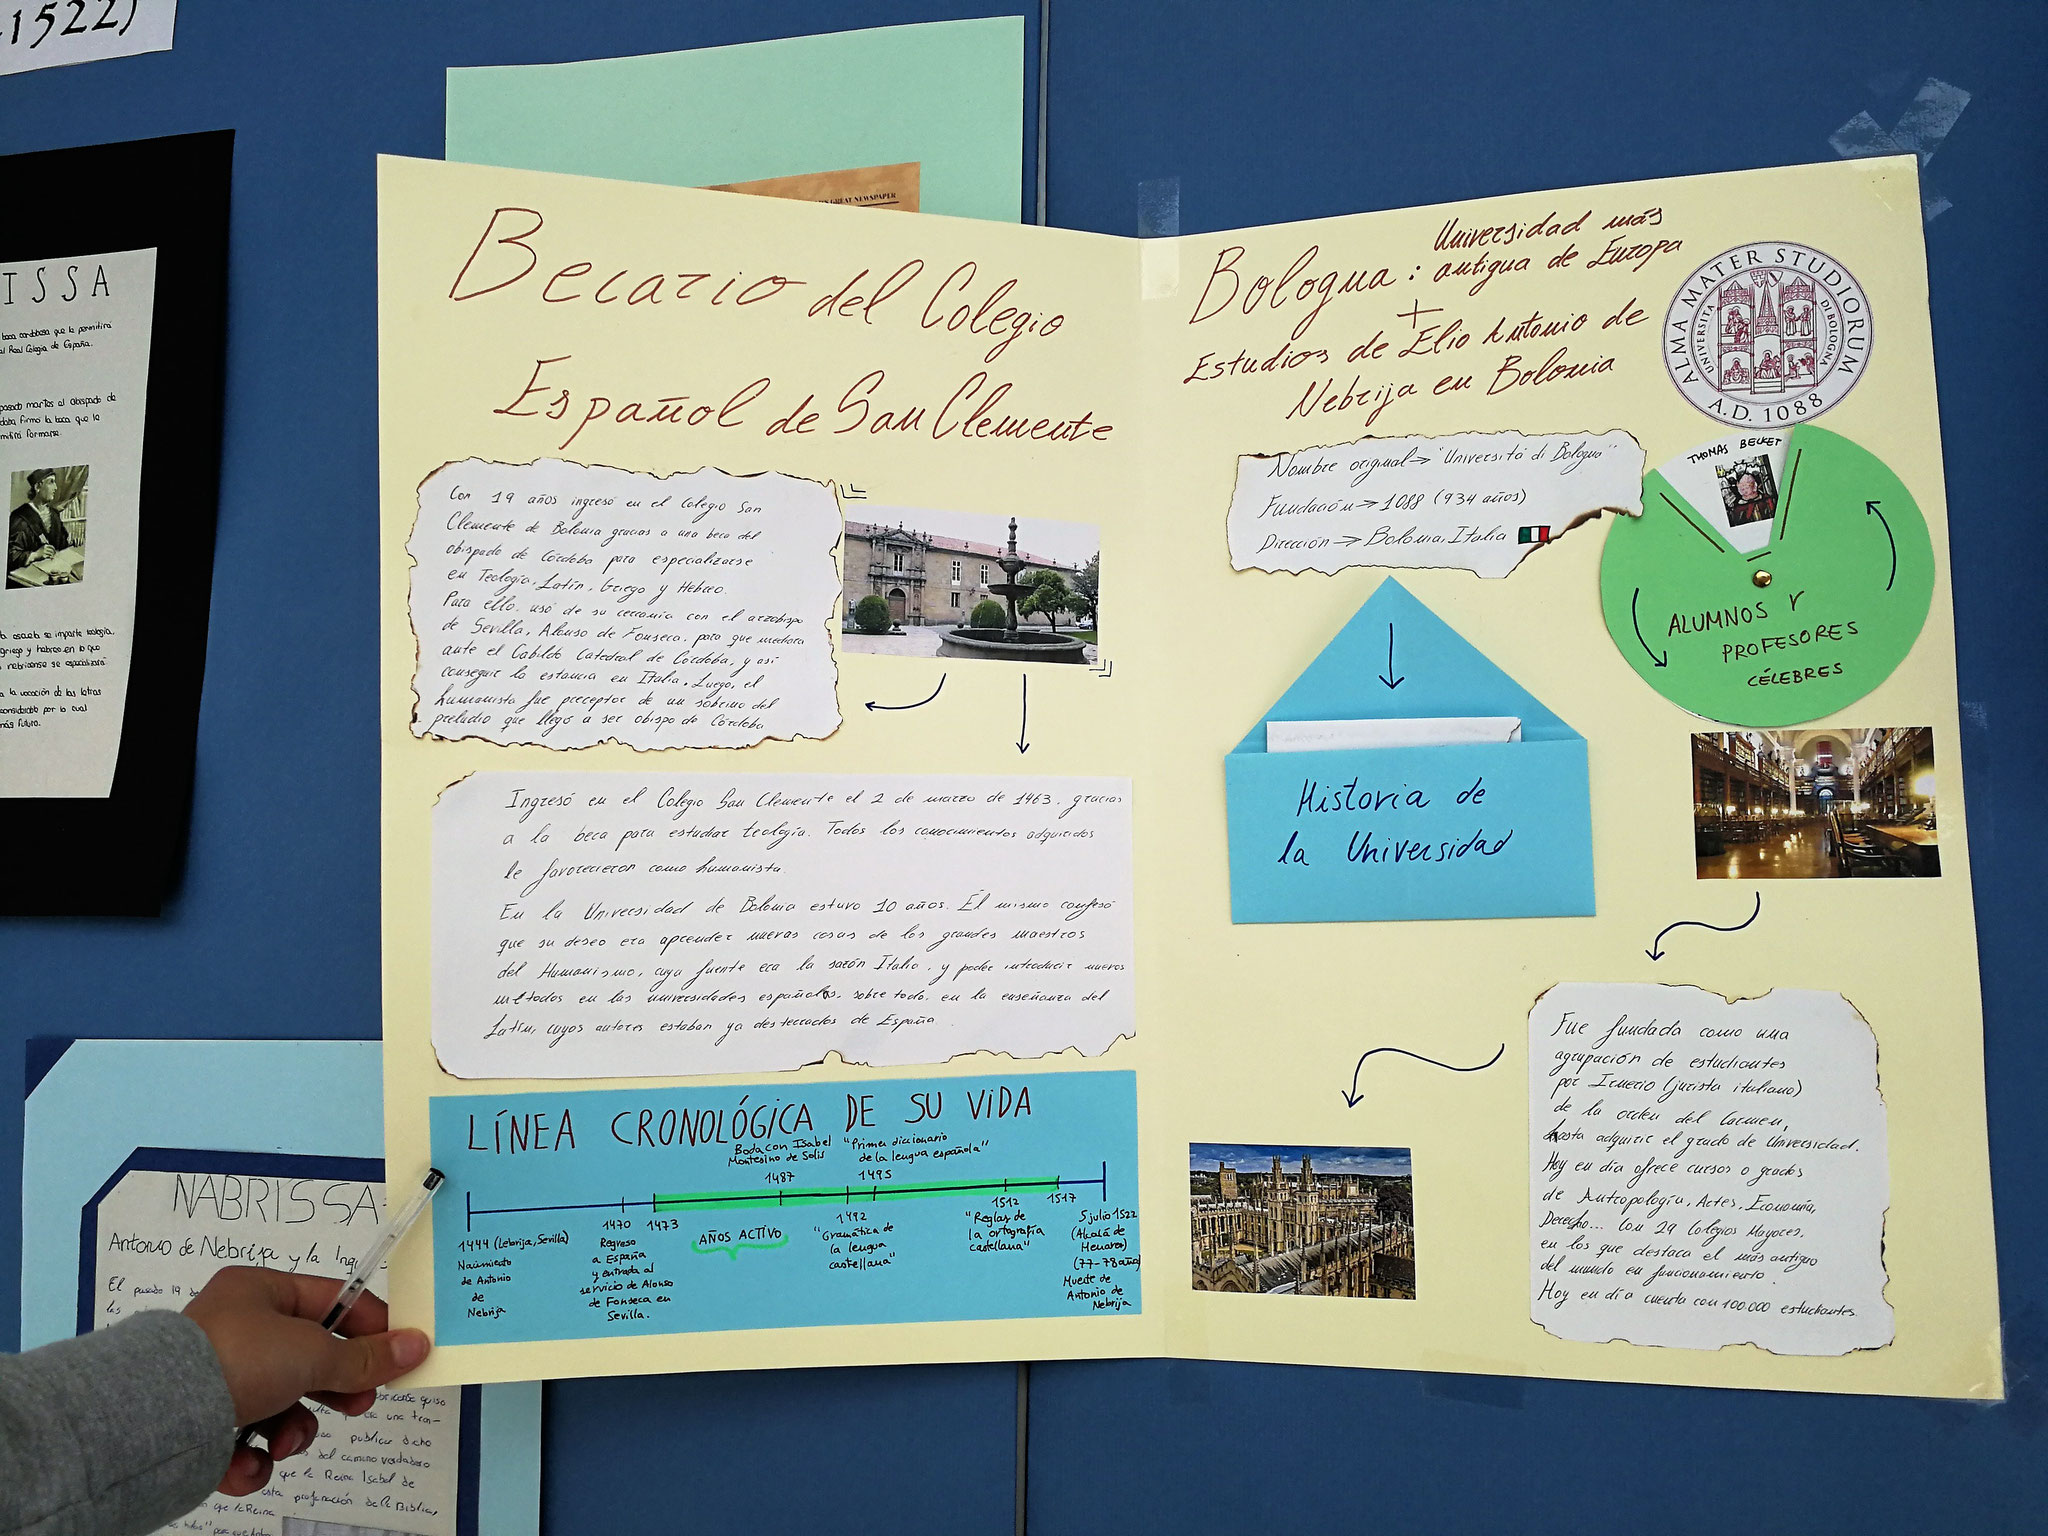 -1522)
ISSA
beca cordobesa que le permitirá
al Real Colegio de España.
pasado martes el Obispado de
firmo la beca que le
formarse.
escuela se imparte teología,
griego y hebreo en lo que
nebrisense se especializará
a la vocación de las letras
considerable por lo cual
más futuro.
GREAT NEWSPAPER
Becario del Colegio
Español de San Clemente
Con 19 años ingresó en el Colegio San
Clemente de Bolonia gracias a una beca del
obispado de Córdoba para especializarse
en Teología, Latín, Griego y Hebreo.
Para ello, usó de su cercanía con el arzobispo
de Sevilla, Alonso de Fonseca, para que mediara
ante el Cabildo Catedral de Córdoba, y así
conseguir la estancia en Italia. Luego, el
humanista fue preceptor de un sobrino del
preludio que llegó a ser obispo de Córdoba
Ingresó en el Colegio San Clemente el 2 de marzo de 1463, gracias
a la beca para estudiar teología. Todos los conocimientos adquiridos
le favorecieron como humanista.
En la Universidad de Bolonia estuvo 10 años. Él mismo confesó
que su deseo era aprender nuevas cosas de los grandes maestros
del Humanismo, cuya fuente era la sazón Italia, y poder introducir nuevos
métodos en las universidades españolas, sobre todo, en la enseñanza del
Latín, cuyos autores estaban ya desterrados de España.
LÍNEA CRONOLÓGICA DE SU VIDA
Boda con Isabel
Montesino de Solis
1487
"Primer diccionario
de la lengua española"
1495
1444 (Lebrija, Sevilla)
Nacimiento
de Antonio
de
Nebrija
1470
Regreso
a España
y entrada al
servicio de Alonso
de Fonseca en
Sevilla.
1473
AÑOS ACTIVO
1492
"Gramática de
la lengua
castellana"
1512
"Reglas de
la ortografía
castellana"
1517
5 julio 1522
(Alcalá de
Henares)
(77-78 años)
Muerte de
Antonio de
Nebrija
Bologna: Universidad más
antigua de Europa
+
Estudios de Elio Antonio de
Nebrija en Bolonia
ALMA MATER STUDIORUM
UNIVERSITÀ DI BOLOGNA
A.D. 1088
Nombre original → "Universitá di Bologna"
Fundación → 1088 (934 años)
Dirección → Bolonia, Italia
THOMAS BECKET
ALUMNOS Y
PROFESORES
CÉLEBRES
Historia de
la Universidad
Fue fundada como una
agrupación de estudiantes
por Irnerio (jurista italiano)
de la orden del Carmen,
hasta adquirir el grado de Universidad.
Hoy en día ofrece cursos o grados
de Antropología, Artes, Economía,
Derecho... con 29 Colegios Mayores,
en los que destaca el más antiguo
del mundo en funcionamiento.
Hoy en día cuenta con 100.000 estudiantes
NABRISSA
Antonio de Nebrija y la Inqu
El pasado 19 de
las
quiso
una tran-
publicar dicho
del camino verdadero
que la Reina Isabel de
esta profanación de la Biblia,
que la Reina